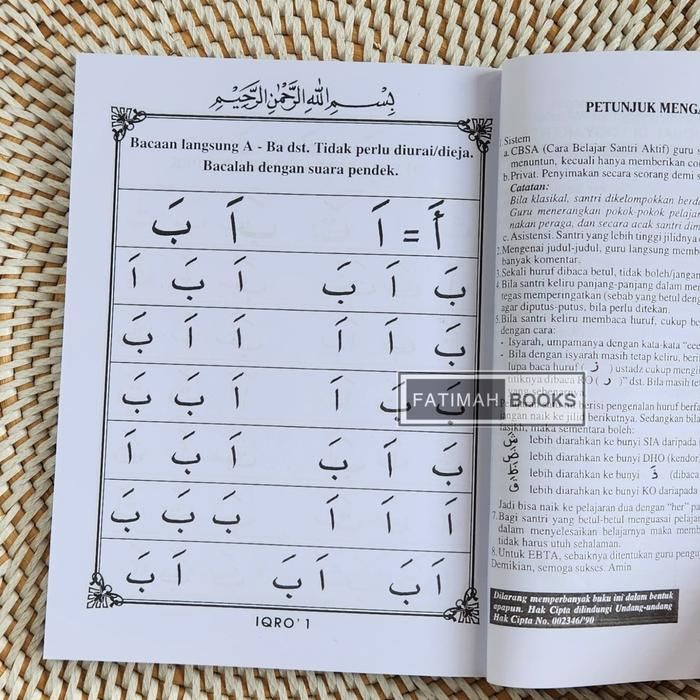 بِسْمِ اللهِ الرَّحْمٰنِ الرَّحِيْمِ
Bacaan langsung A - Ba dst. Tidak perlu diurai/dieja.
Bacalah dengan suara pendek.
أَ = اَ اَ بَ
بَ اَ بَ اَ بَ اَ
بَ اَ اَ اَ اَ بَ
بَ بَ اَ اَ بَ بَ
بَ اَ بَ اَ بَ اَ
اَ اَ اَ بَ بَ بَ
اَ بَ اَ بَ اَ بَ
IQRO' 1
PETUNJUK
1. Sistem
a. CBSA (Cara Belajar Santri Aktif) guru
menuntun, kecuali hanya memberikan
b. Privat. Penyimakan secara seorang demi
Catatan:
Bila klasikal, santri dikelompokkan
Guru menerangkan pokok-pokok
nakan peraga, dan secara acak santri
c. Asistensi. Santri yang lebih tinggi
2. Mengenai judul-judul, guru langsung
banyak komentar.
3. Sekali huruf dibaca betul, tidak boleh/jangan
4. Bila santri keliru panjang-panjang dalam
tegas memperingatkan (sebab yang betul
agar diputus-putus, bila perlu ditekan.
5. Bila santri keliru membaca huruf, cukup
dengan cara:
- Isyarah, umpamanya dengan kata-kata
- Bila dengan isyarah masih tetap keliru,
lupa baca huruf ( زَ ) ustadz cukup
dibaca RO ( رَ )" dst. Bila masih
FATIMAH BOOKS
berisi pengenalan huruf
naik ke jilid berikutnya. Sedangkan
fasikh, maka sementara boleh:
lebih diarahkan ke bunyi SIA daripada
lebih diarahkan ke bunyi DHO (kendor)
lebih diarahkan ke bunyi ذَ (dibaca
lebih diarahkan ke bunyi KO daripada
Jadi bisa naik ke pelajaran dua dengan "her"
7. Bagi santri yang betul-betul menguasai
dalam menyelesaikan belajarnya maka
tidak harus utuh sehalaman.
8. Untuk EBTA, sebaiknya ditentukan guru
Demikian, semoga sukses. Amin
Dilarang memperbanyak buku ini dalam bentuk
apapun. Hak Cipta dilindungi Undang-undang
Hak Cipta No. 002346/'90